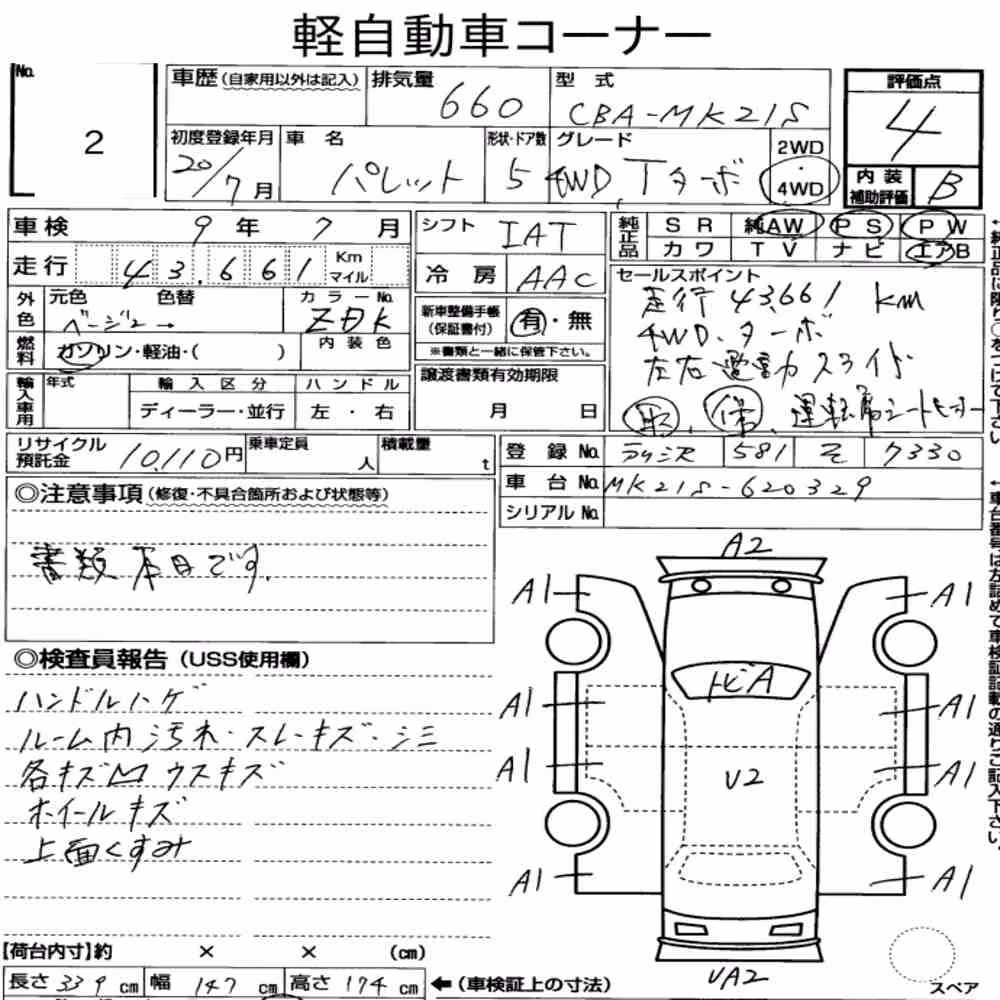 軽自動車コーナー
No. 2
車歴 (自家用以外は記入) 排気量 660 型式 CBA-MK21S 評価点 4
初度登録年月 20/7月 車名 パレット 形状・ドア数 5 グレード 4WD, Tターボ 2WD・4WD
内装補助評価 B
車検 9年 7月 シフト IAT 純正品 SR 純AW PS PW
カワ TV ナビ エアB
走行 43,661 Km マイル 冷房 AAC
セールスポイント
走行 43661 km
4WD. ターボ
左右電動スライド
取、保、運転席シートヒーター
外色 元色 ベージュ 色替 カラーNo. 内装色
新車整備手帳(保証書付) 有・無
※書類と一緒に保管下さい。
燃料 ガソリン・軽油・( )
輸入車用 年式 輸入区分 ディーラー・並行 ハンドル 左・右
譲渡書類有効期限 月 日
リサイクル預託金 10,110円 乗車定員 人 積載量 t
登録No. 581 そ 7330
車台No. MK21S-620329
シリアルNo.
◎注意事項(修復・不具合箇所および状態等)
書類本日です.
◎検査員報告(USS使用欄)
ハンドルハゲ
ルーム内汚れ・スレ・キズ・シミ
各キズ凹ウスキズ
ホイールキズ
上面くすみ
A2
A1 A1
トビA
A1 A1
A1 U2 A1
A1 A1
UA2
スペア
【荷台内寸】約 × × (cm)
長さ 339 cm 幅 147 cm 高さ 174 cm ←(車検証上の寸法)